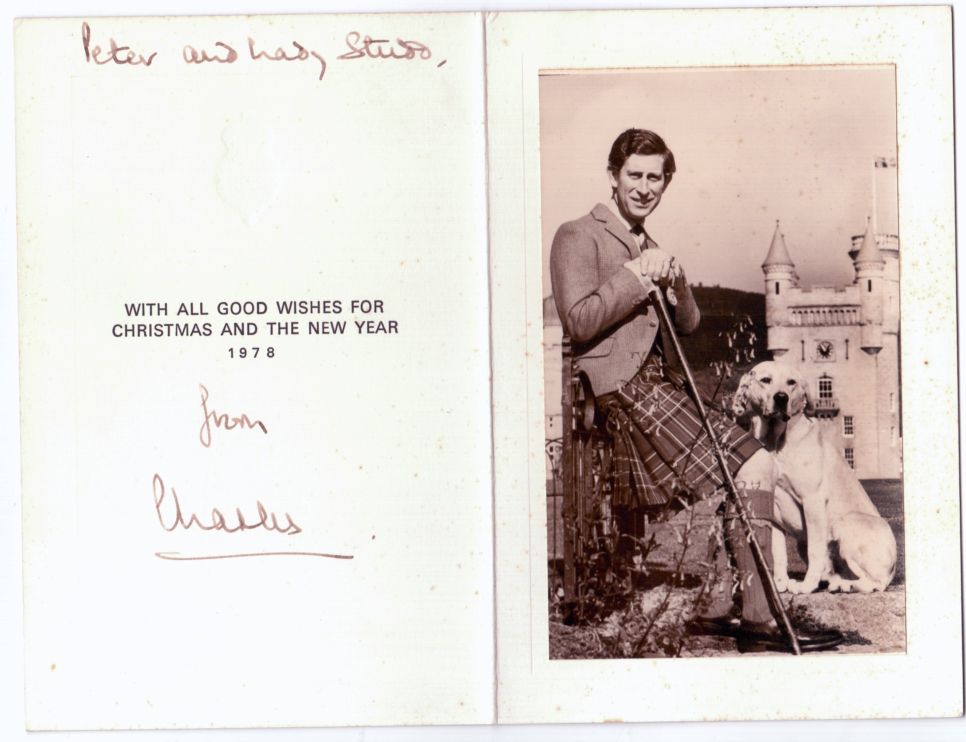 Peter and Lady Studd,
WITH ALL GOOD WISHES FOR
CHRISTMAS AND THE NEW YEAR
1978
from
Charles